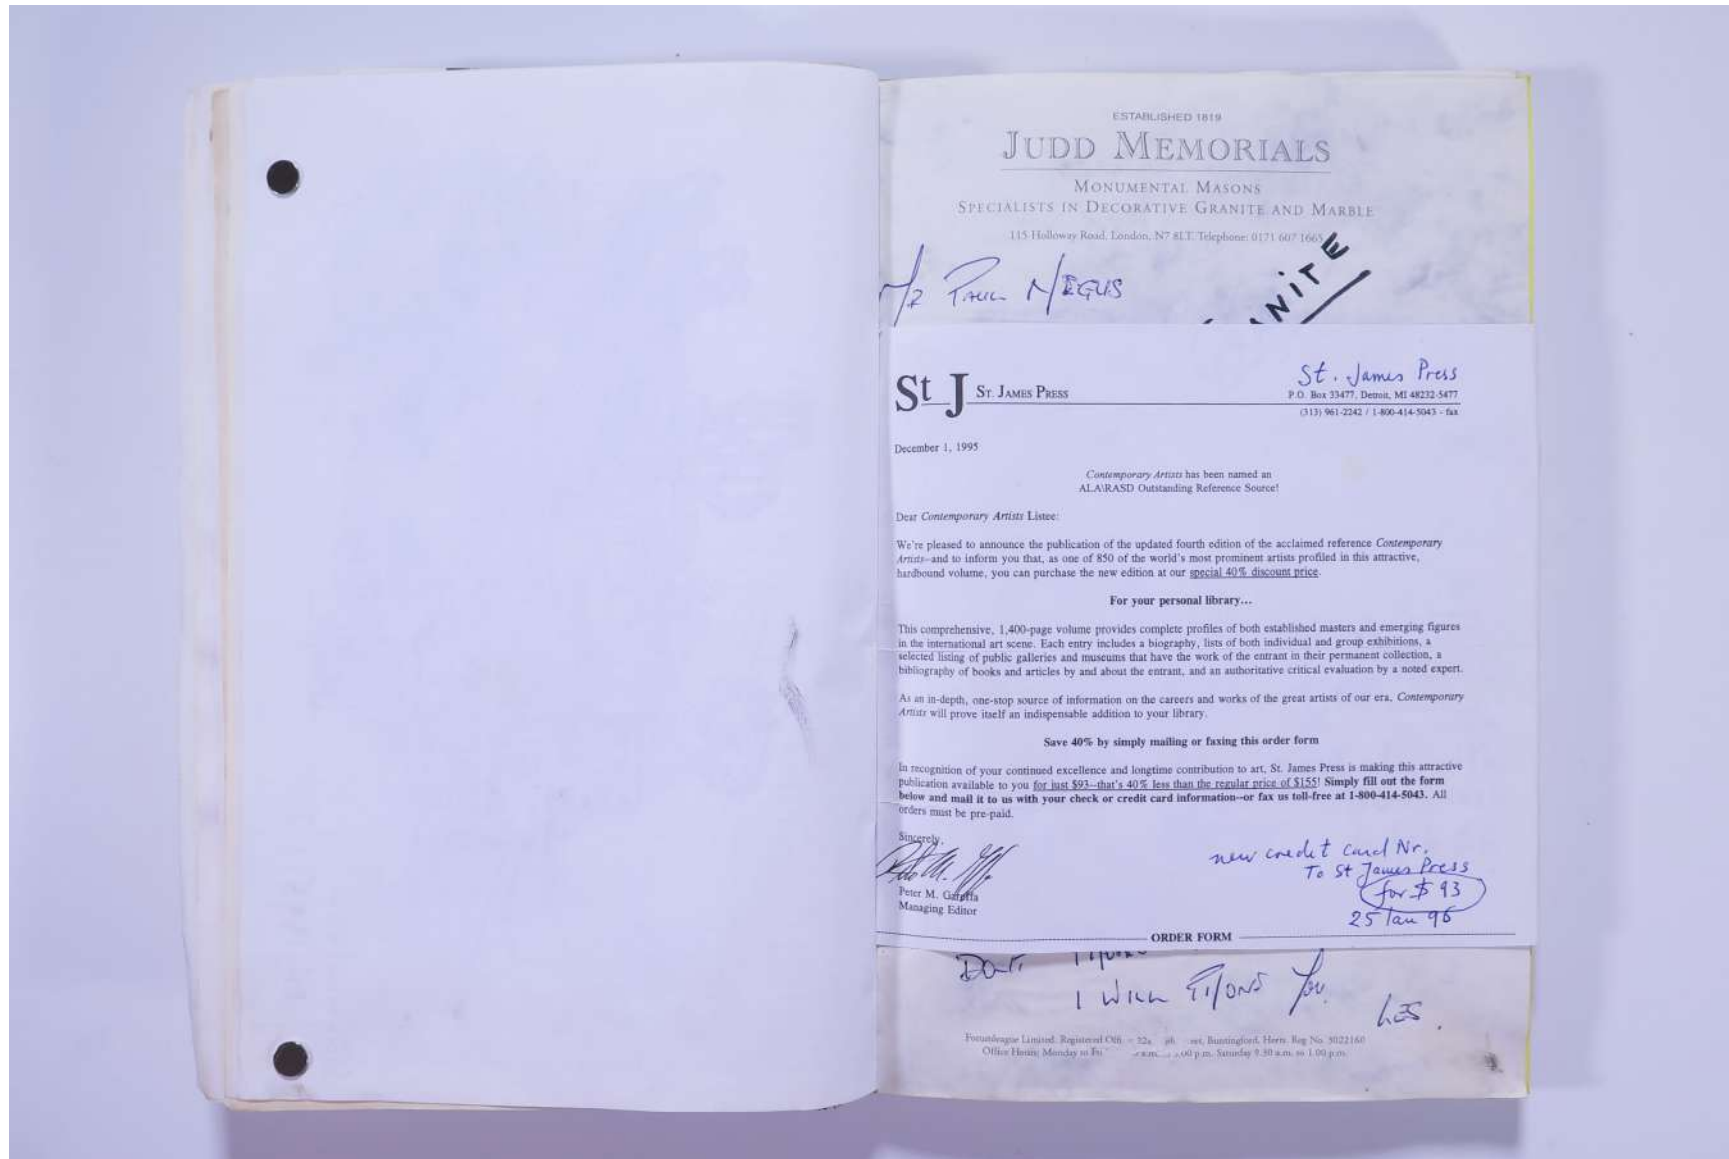 ESTABLISHED 1819
JUDD MEMORIALS
MONUMENTAL MASONS
SPECIALISTS IN DECORATIVE GRANITE AND MARBLE
115 Holloway Road, London, N7 8LT. Telephone: 0171 607 1665
Mr PAUL NEGUS
ANITE
St J ST. JAMES PRESS
St. James Press
P.O. Box 33477, Detroit, MI 48232-5477
(313) 961-2242 / 1-800-414-5043 - fax
December 1, 1995
Contemporary Artists has been named an
ALA\RASD Outstanding Reference Source!
Dear Contemporary Artists Listee:
We're pleased to announce the publication of the updated fourth edition of the acclaimed reference Contemporary
Artists--and to inform you that, as one of 850 of the world's most prominent artists profiled in this attractive,
hardbound volume, you can purchase the new edition at our special 40% discount price.
For your personal library...
This comprehensive, 1,400-page volume provides complete profiles of both established masters and emerging figures
in the international art scene. Each entry includes a biography, lists of both individual and group exhibitions, a
selected listing of public galleries and museums that have the work of the entrant in their permanent collection, a
bibliography of books and articles by and about the entrant, and an authoritative critical evaluation by a noted expert.
As an in-depth, one-stop source of information on the careers and works of the great artists of our era, Contemporary
Artists will prove itself an indispensable addition to your library.
Save 40% by simply mailing or faxing this order form
In recognition of your continued excellence and longtime contribution to art, St. James Press is making this attractive
publication available to you for just $93--that's 40% less than the regular price of $155! Simply fill out the form
below and mail it to us with your check or credit card information--or fax us toll-free at 1-800-414-5043. All
orders must be pre-paid.
Sincerely,
Peter M. Gareffa
Managing Editor
new credit card Nr.
To St James Press
for $ 93
25 Jan 96
ORDER FORM
I WILL PHONE You.
LES.
Forumleague Limited. Registered Buntingford, Herts. Reg No. 3022160
Office Hours: Monday to p.m. Saturday 9.30 a.m. to 1.00 p.m.